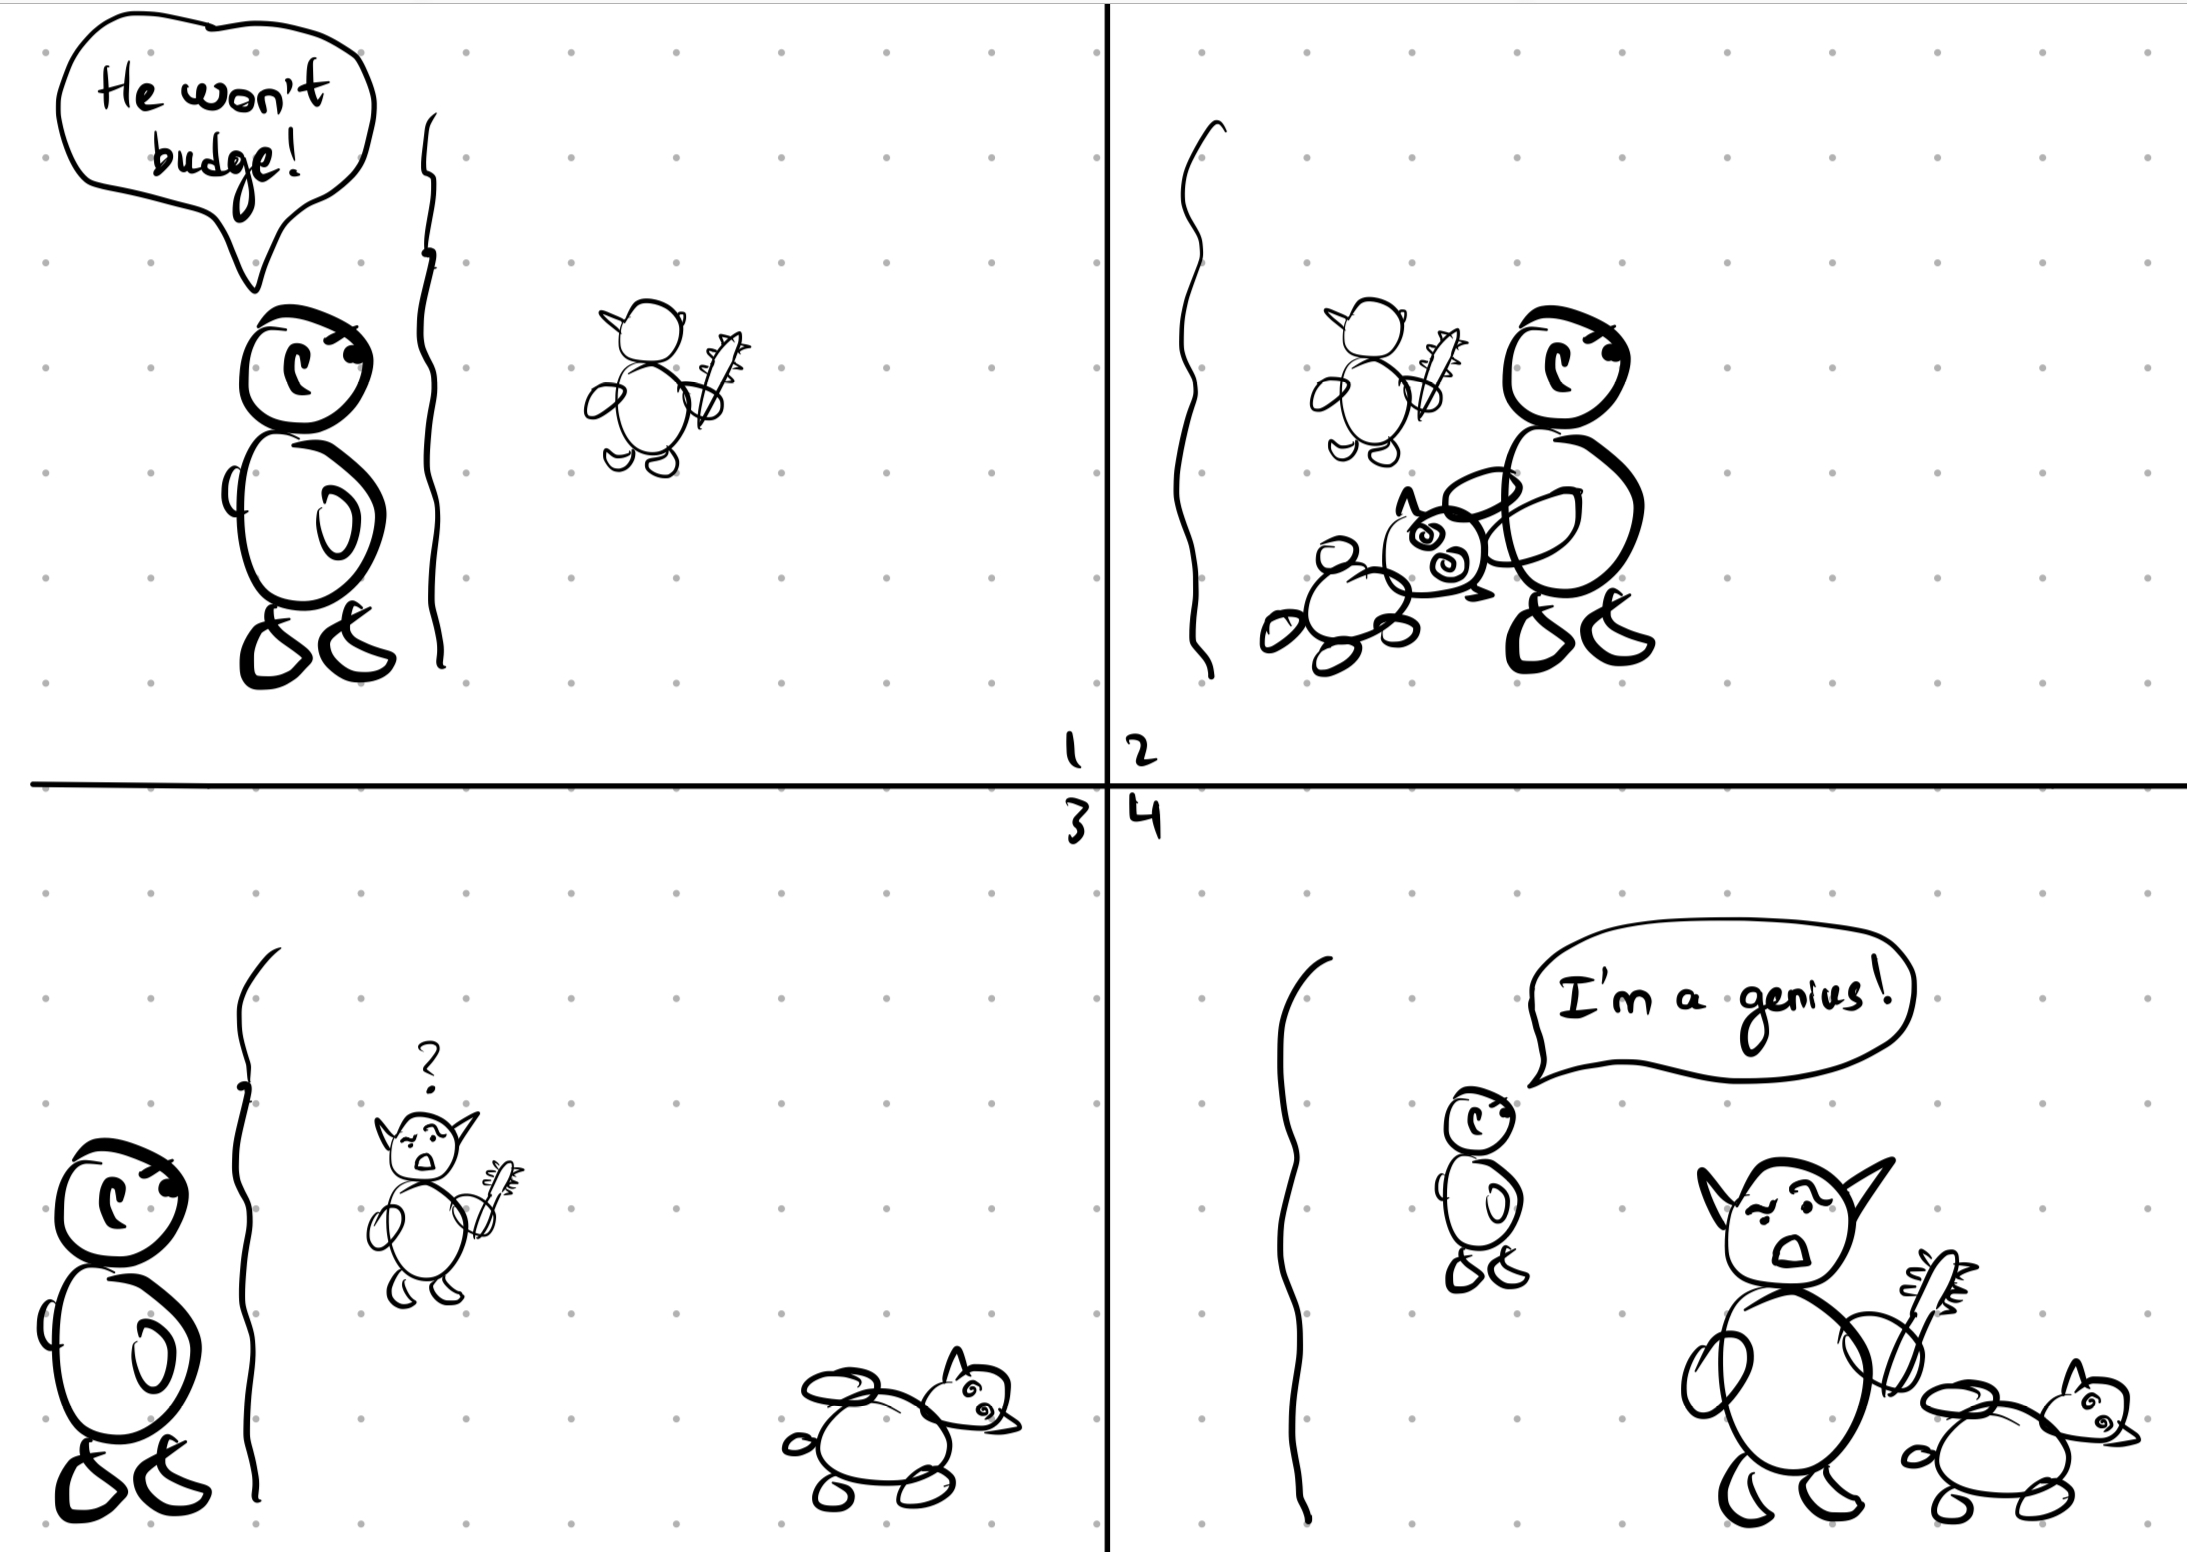 He won't
budge!
1
2
3
4
?
I'm a genius!